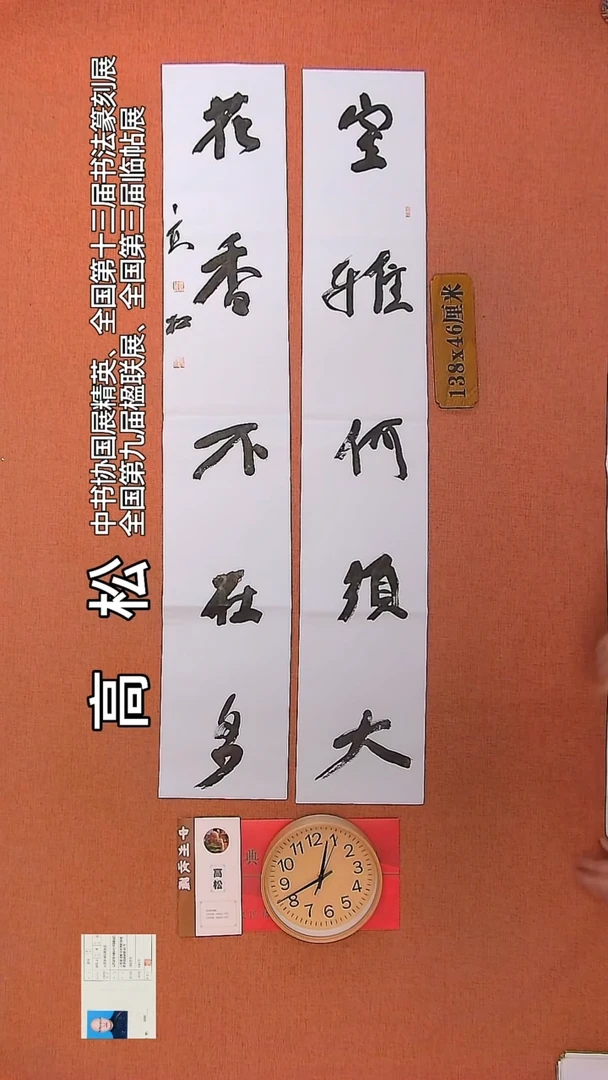 室雅何須大
花香不在多
高松
中书协国展精英、全国第十三届书法篆刻展
全国第九届楹联展、全国第三届临帖展
高 松
138x46厘米
高松
典
12 1 2 3 4 5 6 7 8 9 10 11